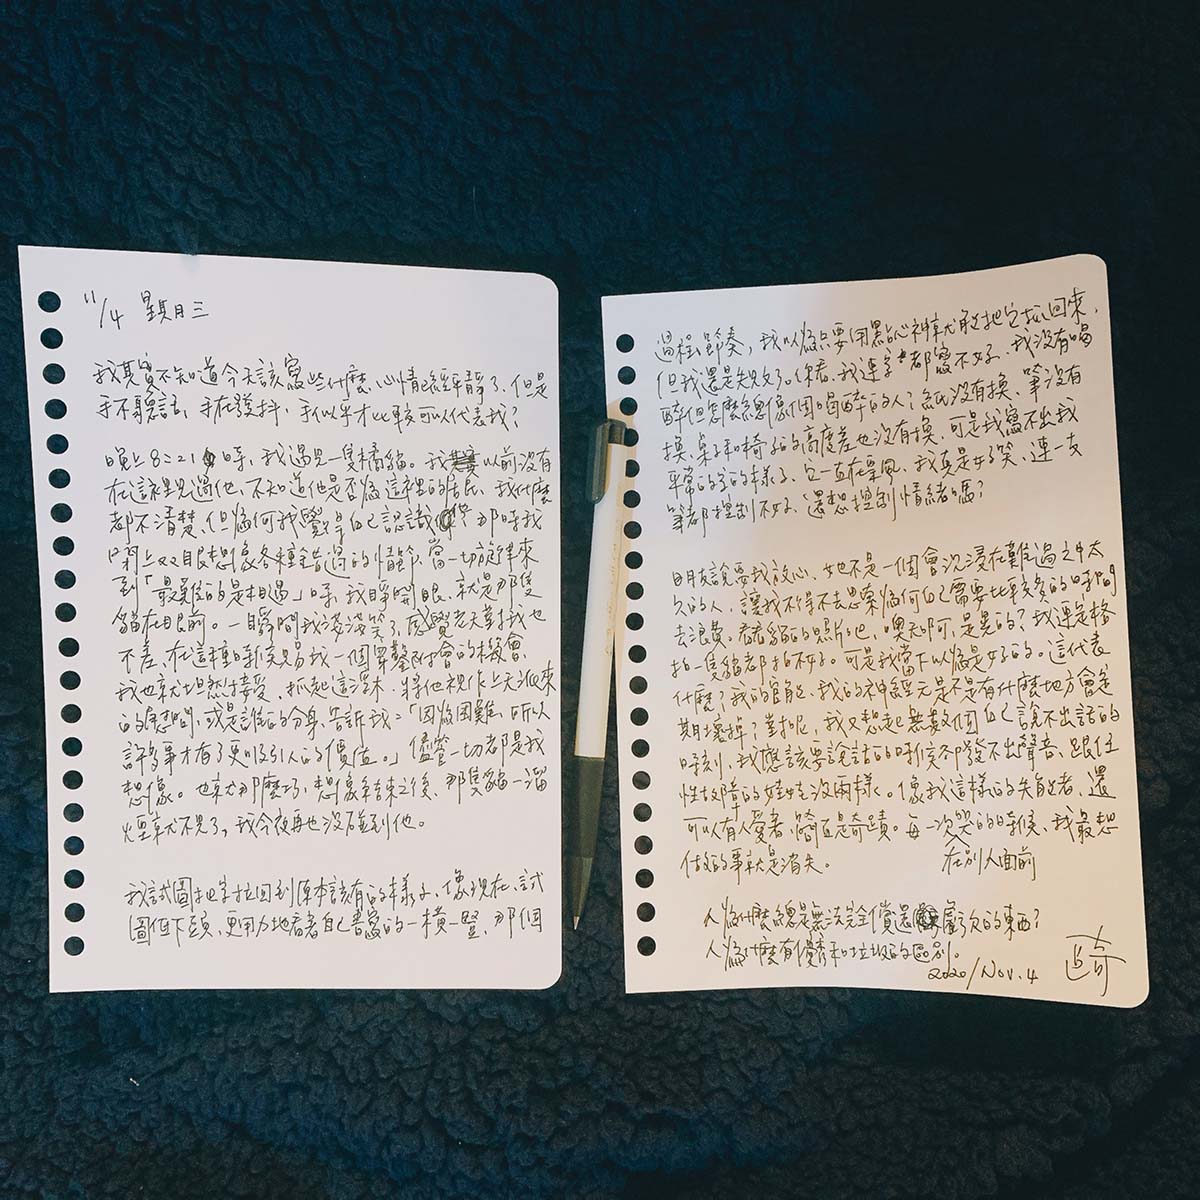 11/4 星期三
我其實不知道今天該寫些什麼、心情已經平靜了、但是
手不聽話、手在發抖、手似乎才比較可以代表我？
晚上8:21時，我遇見一隻橘貓。我以前沒有
在這裡見過他、不知道他是否為這裡的居民、我什麼
都不清楚、但為何我覺得自己認識他？那時我
閉上雙眼想像各種錯過的情節、當一切旋律來
到「最難的是相遇」時、我睜開眼、就是那隻
貓在眼前。一瞬間我淺淺笑了、感覺老天對我也
不差、在這種時候賜我一個穿鑿附會的機會、
我也就坦然接受、抓起這浮木、將他視作上天派來
的慰問、或是誰的分身、告訴我：「因為困難、所以
許多事才有了更吸引人的價值。」儘管一切都是我
想像。也就那麼巧、想像結束之後、那隻貓一溜
煙就不見了，我今夜再也沒碰到他。
我試圖把字拉回到原本該有的樣子、像現在、試
圖低下頭、更用力地看著自己書寫的一橫一豎、那個
過程、節奏，我以為只要用點心神就能把它拉回來，
但我還是失敗了。你看、我連字都寫不好、我沒有喝
醉但怎麼總像個喝醉的人？紙沒有換、筆沒有
換、桌子和椅子的高度差也沒有換、可是我寫不出我
平常的字的樣子、它一直在飄、我真是好笑、連一支
筆都控制不好、還想控制情緒嗎？
朋友說要我放心、她不是一個會沉浸在難過之中太
久的人、讓我不得不去思索為何自己需要比較多的時間
去浪費。看看貓的照片吧、噢天啊、是晃的？我連是格
拍一隻貓都拍不好。可是我當下以為是好的。這代表
什麼？我的官能、我的神經元是不是有什麼地方會定
期壞掉？對呢、我又想起無數個自己說不出話的
時刻、我應該要說話的時候卻發不出聲音、跟任
性故障的娃娃沒兩樣。像我這樣的失能者、還
可以有人愛著、簡直是奇蹟。每一次哭的時候、我最想
在別人面前
做的事就是消失。
人為什麼總是無法完全償還虧欠的東西？
人為什麼有優秀和垃圾的區別。
2020/Nov.4